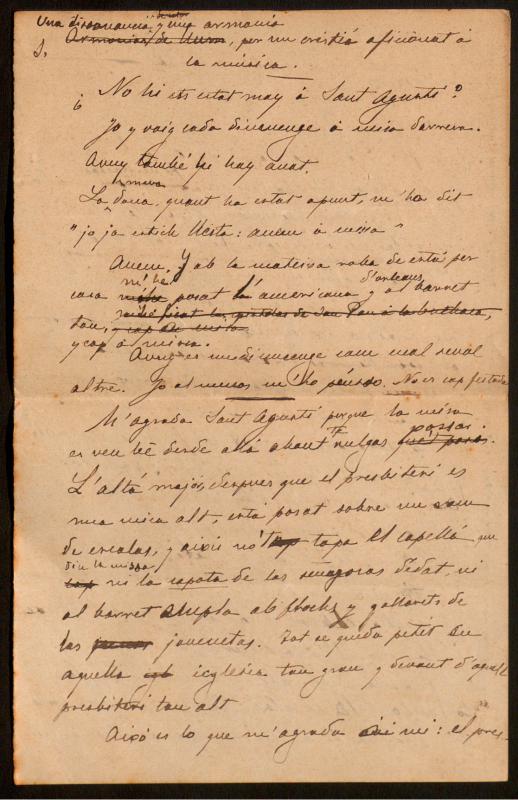 Una disonancia y una armonia
Armonias de Hum, per un cristiá aficionat á
la música.
No hi ets estat may á Sant Agustí?
Jo y vaig cada diumenge á misa darrera.
Avuy també hi hay anat.
La meva
dona, quant ha estat apunt, m'ha dit
"jo ja estich llesta: anem á missa"
Anem. Y ab la mateixa roba de está per
m'he d'orleans
casa posat l'americana y al barret
tou,
y cap á missa.
Avuy es un diumenge com cual sevol
altre. Jo al menos m'ho pensdo. No es cap festada
M'agrada Sant Agustí perque la misa
es veu bé desde allá ahont te vulgas posar.
L'altá major, despues que el presbiteri es
una mica alt, está posat sobre un
de escalas, y aixís no't tapa el capellá que
diu la missa
ni la capota de las señoras d'edat, ni
al barret ab flochs y gallarets de
las jovenetas. Tot se queda petit en
aquella iglesia tan gran y devant d'aquell
presbiteri tan alt
Aixó es lo que m'agrada á mi: el pres-